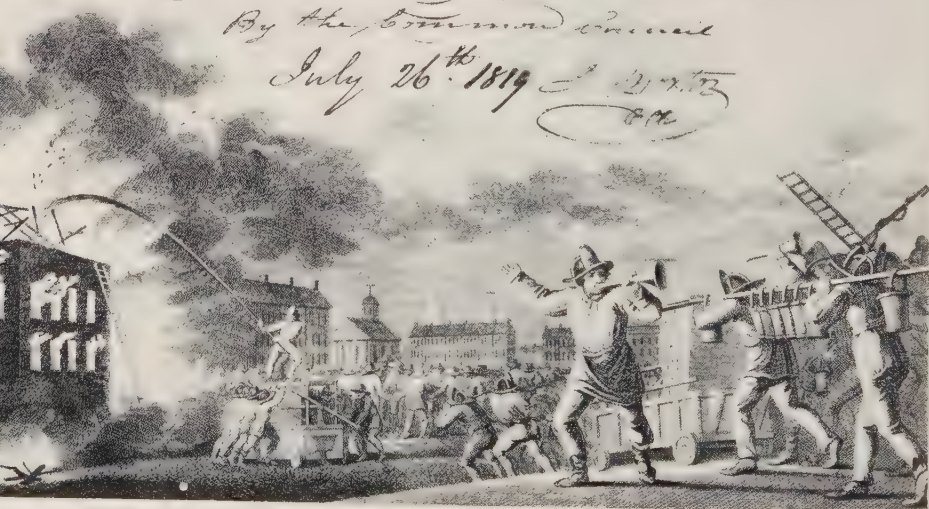 By the Common Council
July 26th. 1819 J